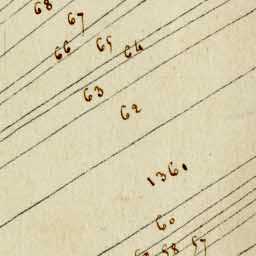 68
67
66 65 64
63
62
136.
60
58 57